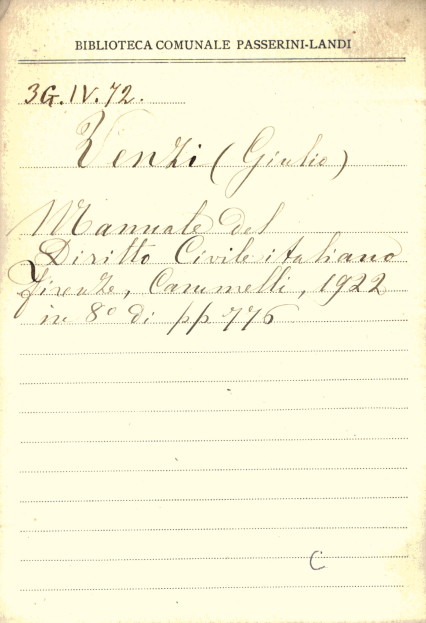 BIBLIOTECA COMUNALE PASSERINI-LANDI
3G.IV.72.
Venzi (Giulio)
Manuale del
Diritto Civile italiano
Firenze, Cammelli, 1922
in 8° di pp 776
C